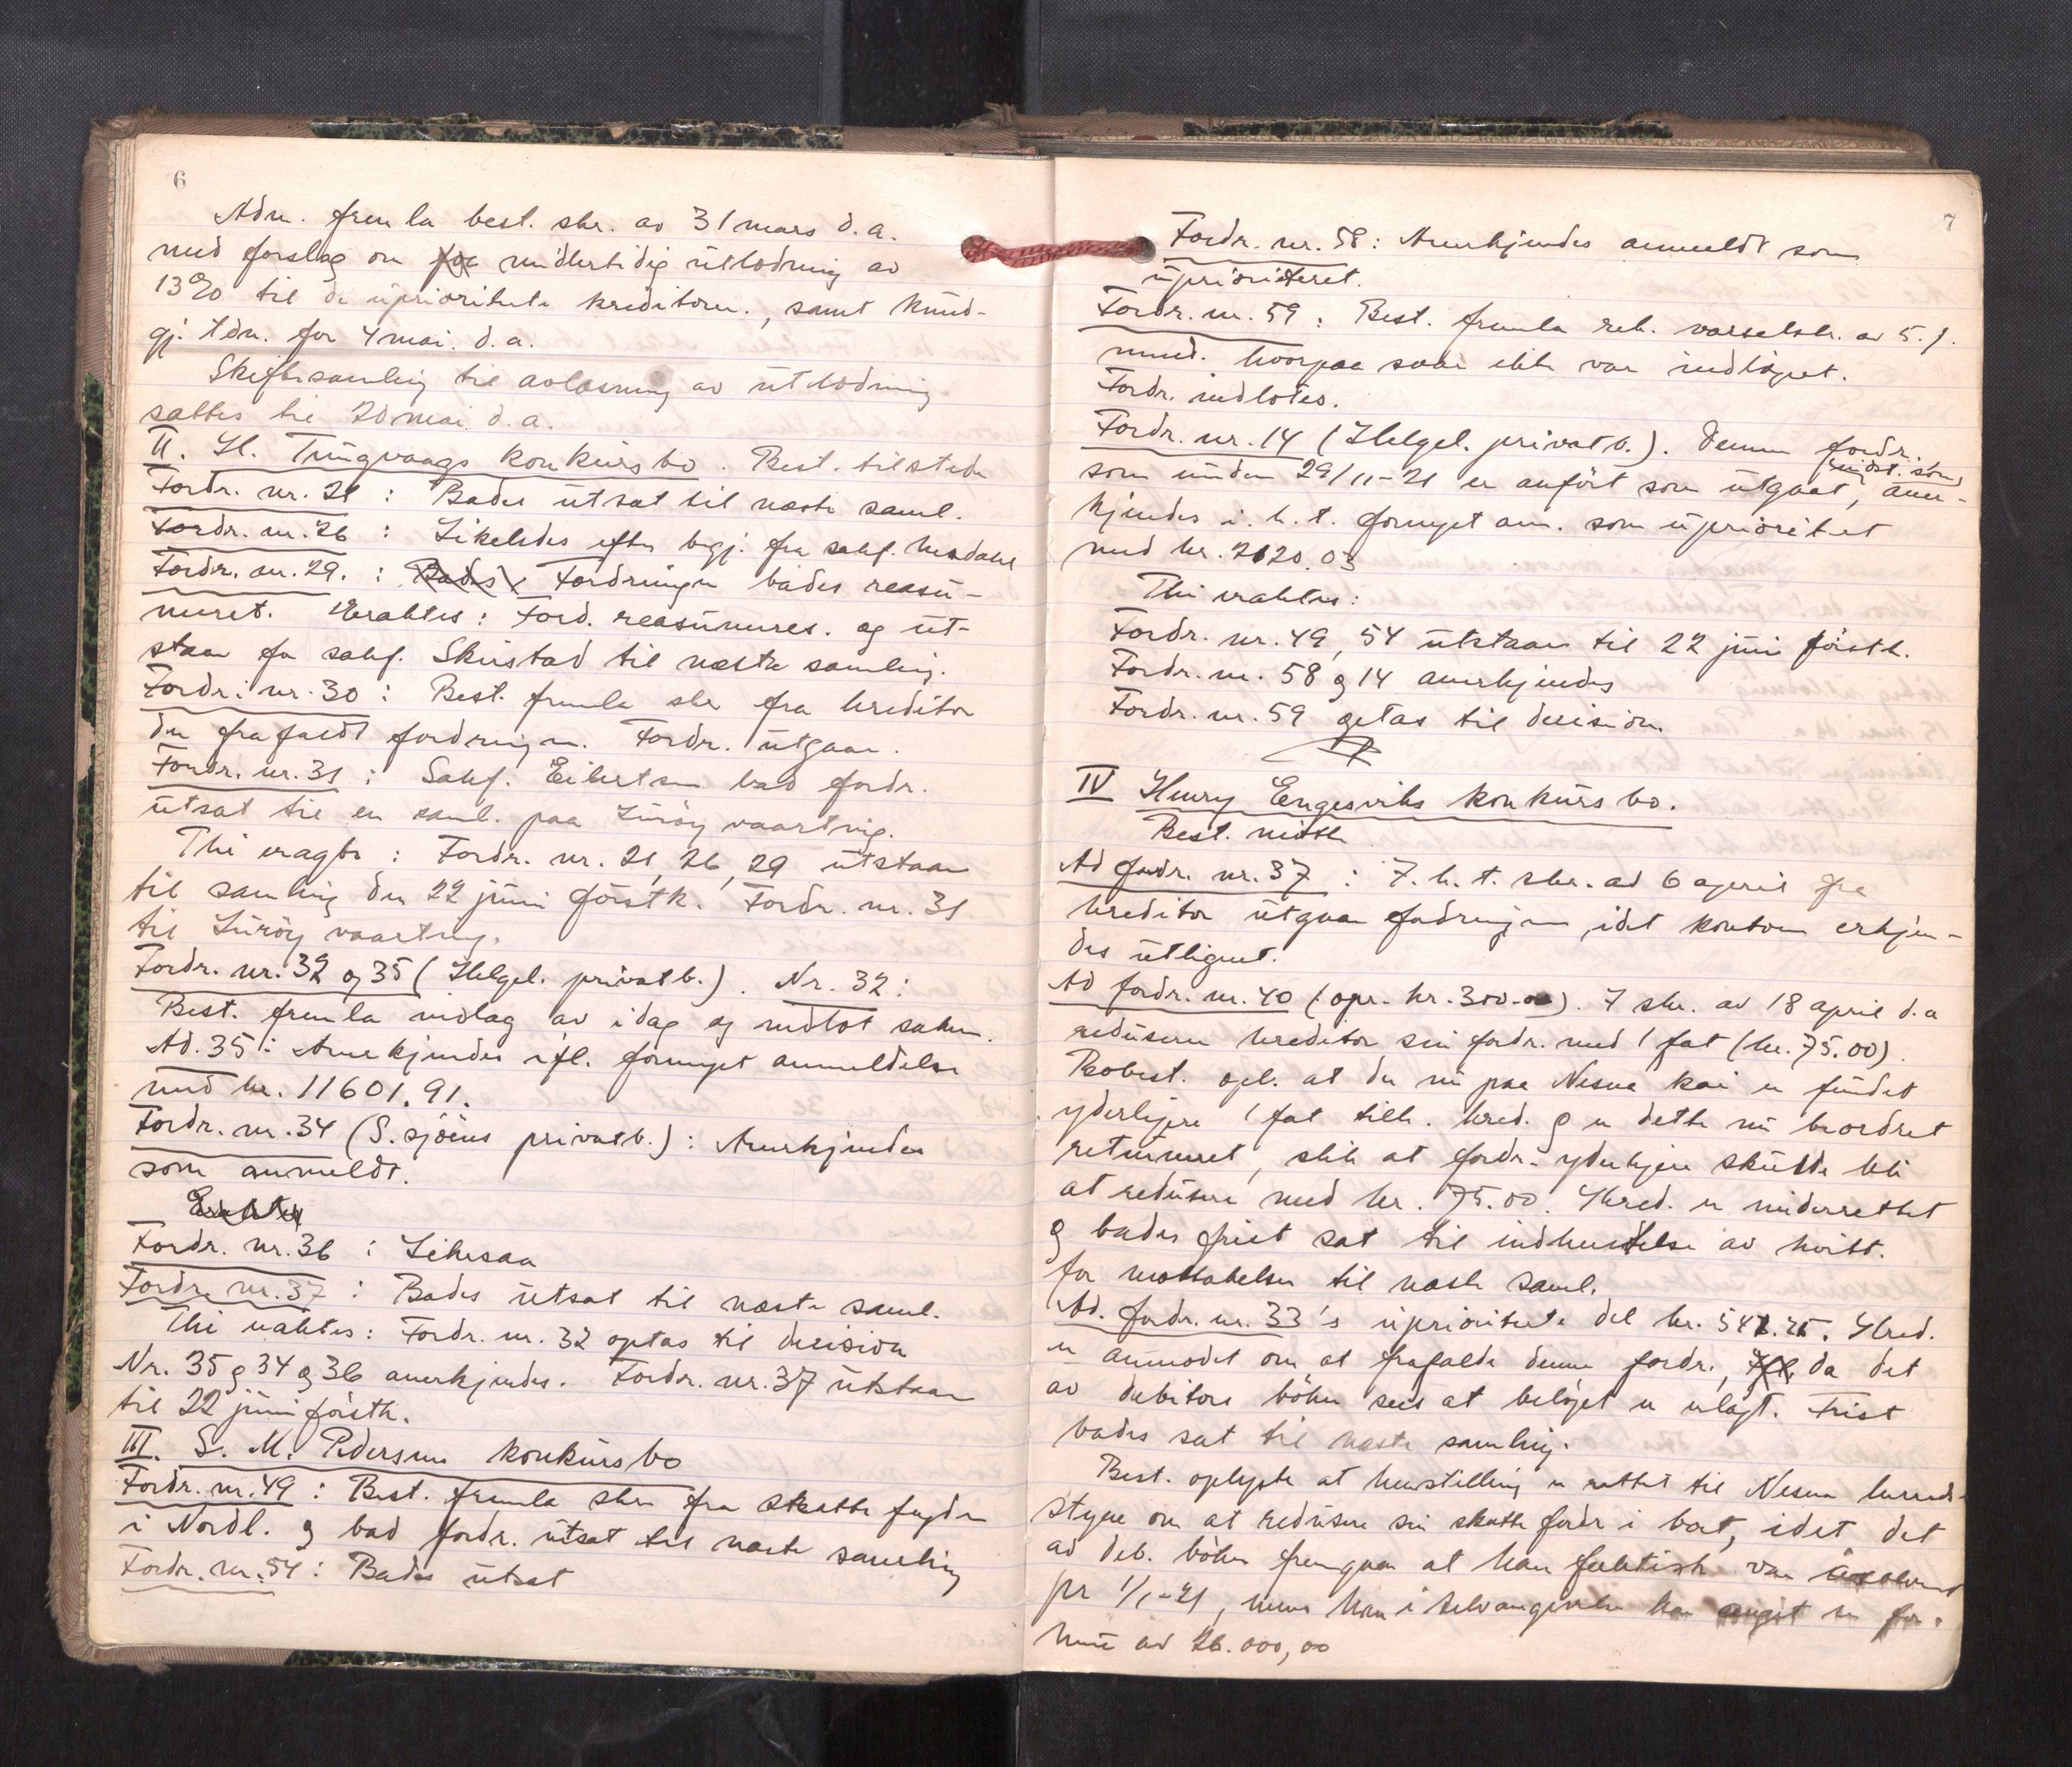 6
Adm. fremla best. skr. av 31 mars d.a.
med forslag om midlertidig utlodning av
13% til de uprioriterte kreditorer, samt kund-
gj. tdn. for 4 mai d.a.
Skiftesamling til avlæsning av utlodning
sattes til 20 mai d.a.
II. H. Tungvaags konkursbo. Best. tilstede
Fordr. nr. 21 : Bades utsat til næste saml.
Fordr. nr. 26 : Likeledes efter begj. fra sakf.
Fordr. nr. 29. : Bades Fordringen bades reasu-
meret. Eraktes: Ford. reasumeres. og ut-
staar for sakf. Skustad til næste samling.
Fordr. nr. 30 : Best. fremla skr fra kreditor
der frafaldt fordringen. Fordr. utgaar.
Fordr. nr. 31 : Sakf. Eilertsen bad fordr.
utsat til en saml. paa Luröy vaartng.
Thi eragtes : Fordr. nr. 21, 26, 29 utstaar
til samling den 22 juni förstk. Fordr. nr. 31
til Luröy vaartng.
Fordr. nr. 32 og 35 (Helgel. privatb.). Nr. 32:
Best. fremla indlag av idag og indlot saken.
Ad. 35: Anerkjendes ifl. fornyet anmeldelse
med kr. 11601.91.
Fordr. nr. 34 (S.sjöens privatb.) : Anerkjendes
som anmeldt.
Eraktes
Fordr. nr. 36 : Likesaa
Fordr. nr. 37 : Bades utsat til næste saml.
Thi eraktes: Fordr. nr. 32 optas til decision
Nr. 35 g 34 g 36 anerkjendes. Fordr. nr. 37 utstaar
til 22 juni förstk.
III. S. M. Pedersens konkursbo
Fordr. nr. 49 : Best. fremla skr fra skattefogden
i Nordl. g bad fordr. utsat til næste samling
Fordr. nr. 54 : Bades utsat
7
Fordr. nr. 58 : Anerkjendes anmeldt som
uprioriteret.
Fordr. nr. 59 : Best. fremla rek. varselskr. av 5. f.
mnd. hvorpaa svar ikke var indløpet.
Fordr. indlotes.
Fordr. nr. 14 (Helgel. privatb.). Denne fordr.
som under 29/11-21 er anfört som utgaat, aner-
kjendes i. h. t. fornyet anm. som uprioritet
med kr. 2120.03
Thi eraktes:
Fordr. nr. 49, 54 utstaar til 22 juni förstk.
Fordr. nr. 58 g 14 anerkjendes
Fordr. nr. 59 optas til decision.
IV Henry Engesviks konkursbo.
Best. mötte
Ad fordr. nr. 37 : I. h. t. skr. av 6 april fra
kreditor utgaar fordringen, idet kontoen erkjen-
des utlignet.
Ad fordr. nr. 40 (opr. kr. 300.00). I skr. av 18 april d.a
reduserer kreditor sin fordr. med 1 fat (kr. 75.00).
Bobest. opl. at der nu paa Nesna kai er fundet
yderligere 1 fat tilh. kred. g er dette nu beordret
returneret, slik at fordr. yderligere skulde bli
at redusere med kr. 75.00. Kred. er underrettet
g bades frist sat til indhentelse av kvitt.
for mottakelsen til næste saml.
Ad. fordr. nr. 33's uprioriterte del kr. Kred.
er anmodet om at frafalde denne fordr., da det
av debitors böker sees at belöpet er erlagt. Frist
bades sat til næste samling.
Best. oplyste at henstilling er rettet til Nesna herreds-
styre om at redusere sin skattefordr i boet, idet det
av deb. böker fremgaar at han faktisk var insolvent
pr 1/1-21, mens han i selvangivelsen har angit en for-
mue av 26.000,00